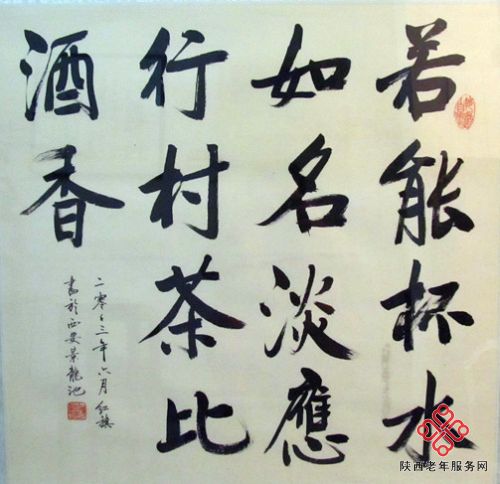 若能杯水
如名淡應
行村茶比
酒香
二零一三年六月红旗
書於西安景龍池
陕西老年服务网